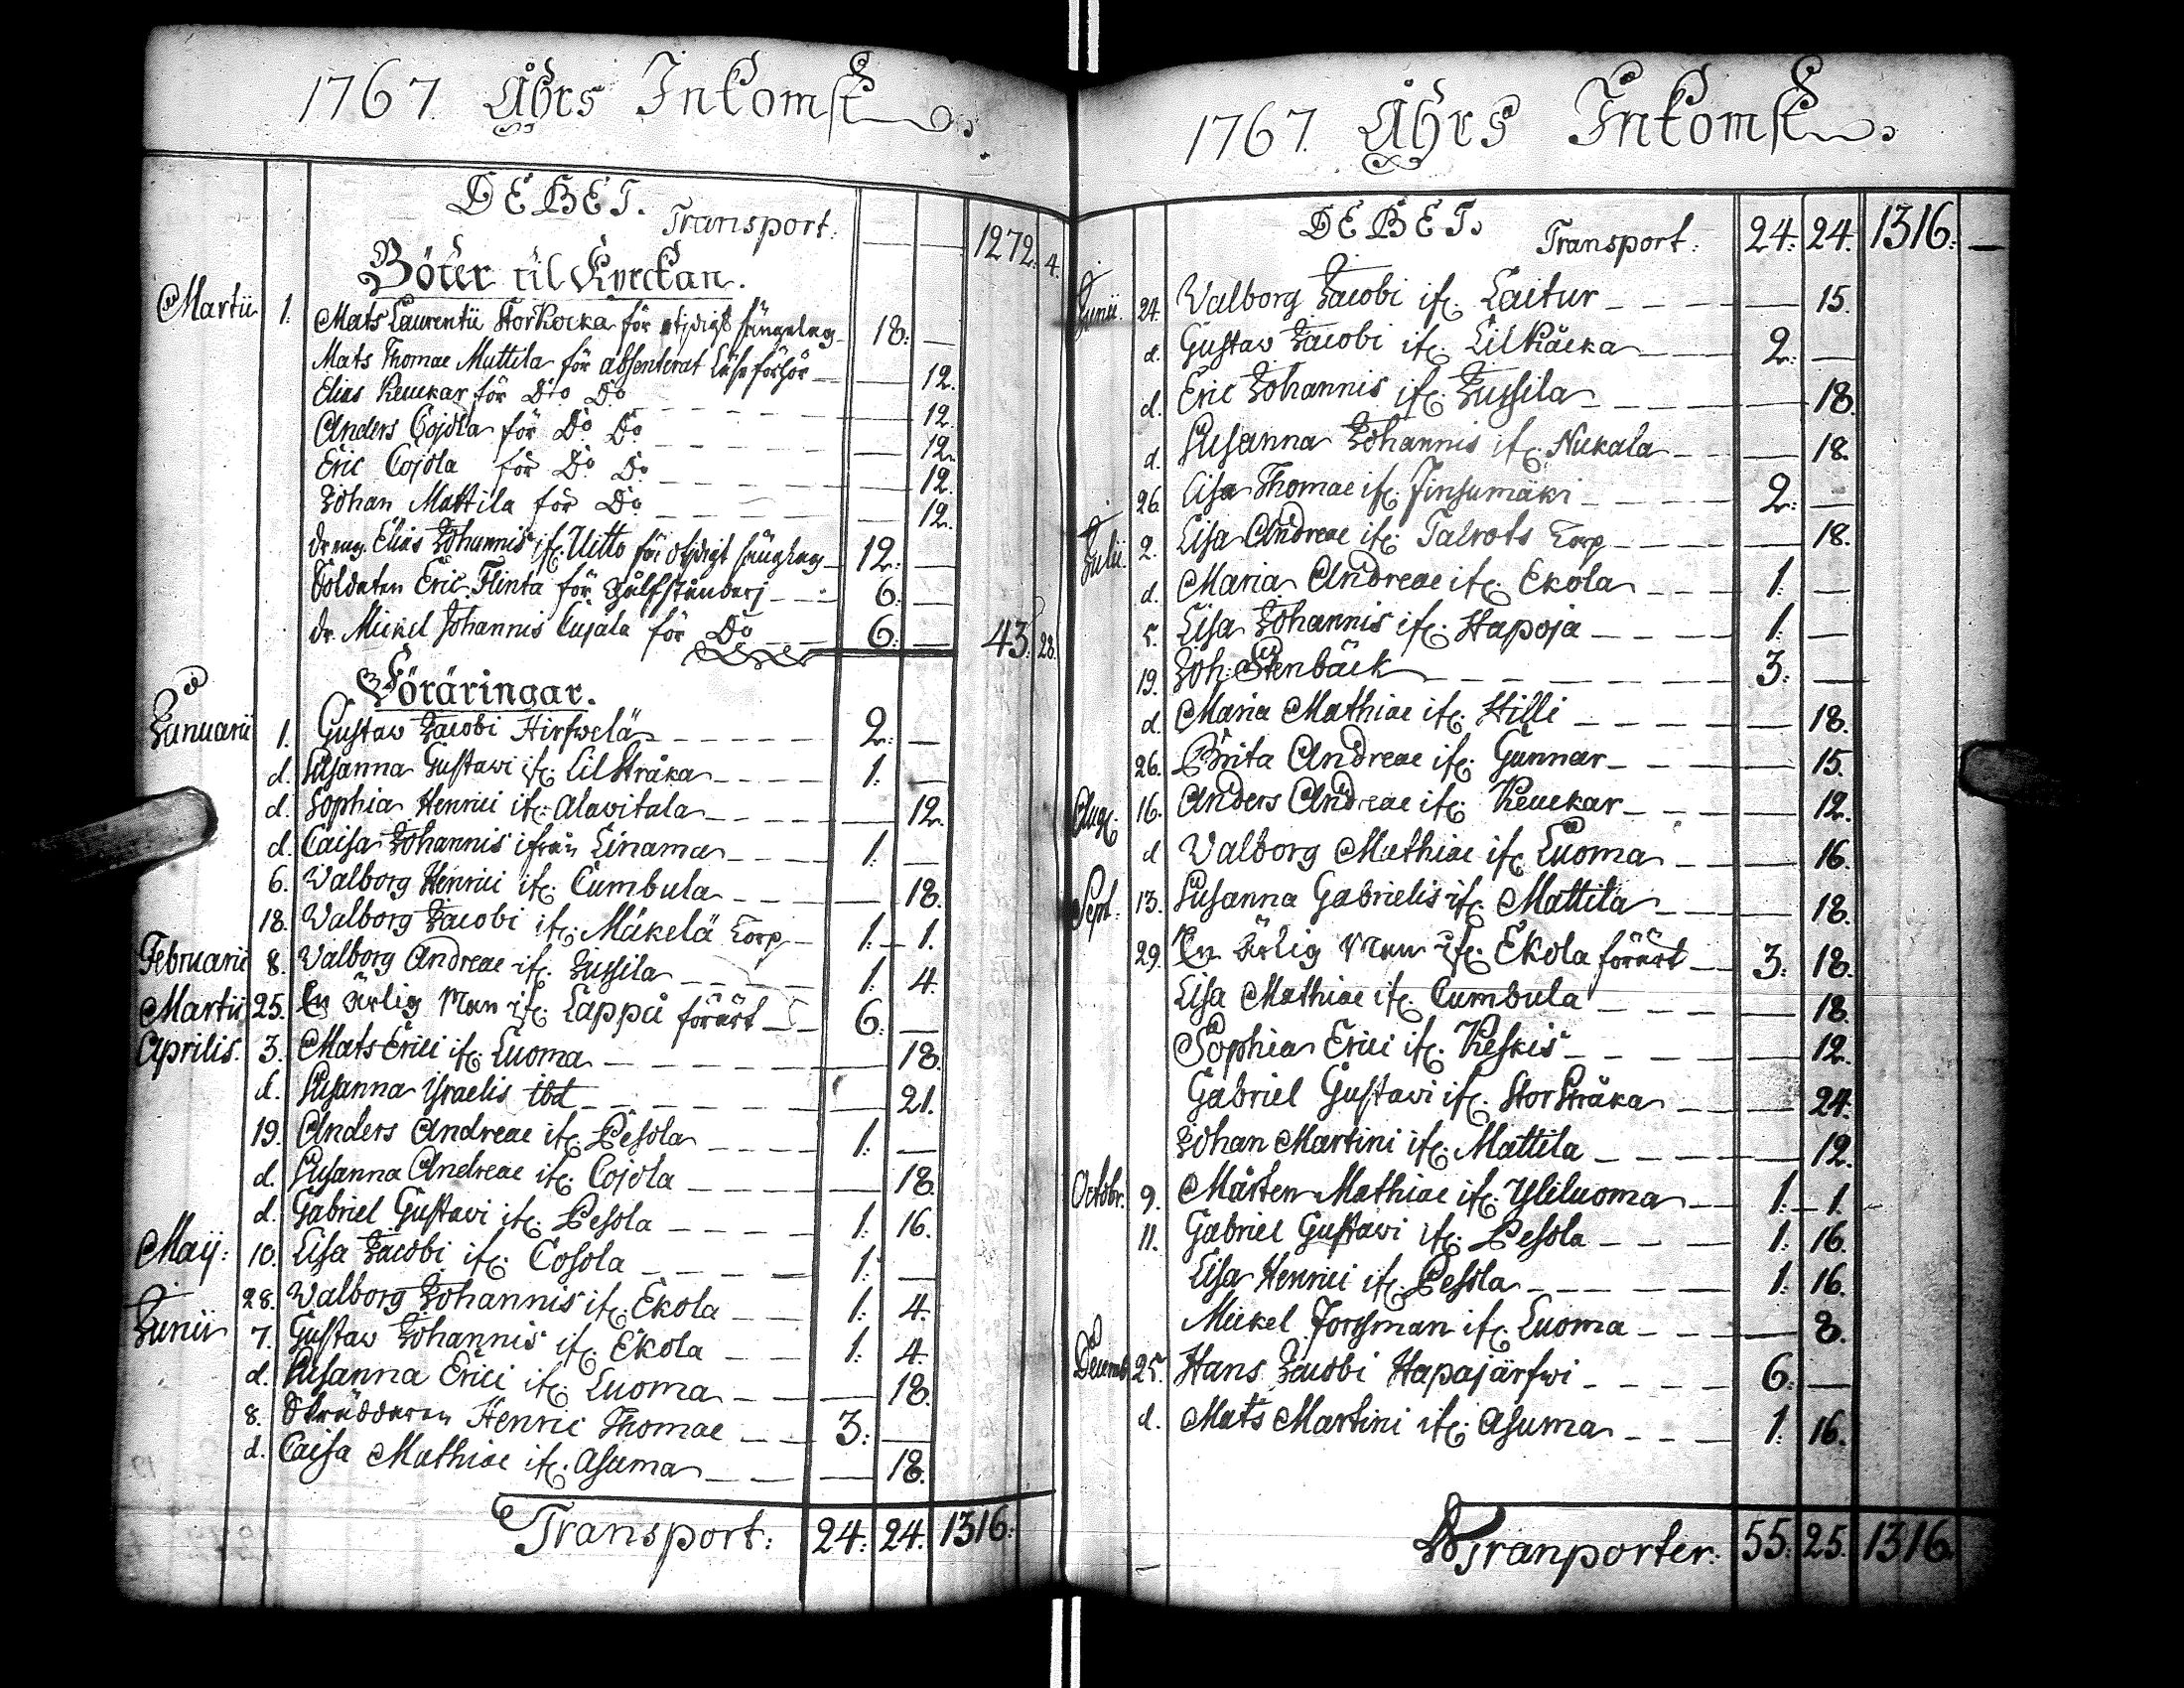 1767. Åhrs Inkomst
DEBET.
Transport: — — 1272: 4.
Böter til Kyrckan.
Martii 1. Mats Laurentii StorKocka för otijdigt sänglag 18: —
Mats Thomae Mattila för absenterat Läseförhör — 12.
Elias Keuckar för Do Do — 12.
Anders Cojola för Do Do — 12.
Eric Cojola för Do Do — 12.
Johan Mattila för Do — 12.
dreng. Elias Johannis if. Uitto för otijdigt sänglag 12: —
Soldaten Eric Flinta för 6: —
dr. Mickel Johannis Cujala för Do 6: — 43: 28.
Föräringar.
Januarii 1. Gustav Jacobi Hirfvelä 2: —
d. Susanna Gustavi if. LilStråka 1: —
d. Sophia Henrici if. Alavitala — 12.
d. Caisa Johannis ifrån Linama 1: —
6. Walborg Henrici if. Cumbula — 18.
18. Walborg Jacobi if. Mäkelä Torp 1: 1.
Februarii 8. Walborg Andreae if. Jussila 1: 4.
Martii 25. En ärlig Man if. Lappå förärt 6: —
Aprilis. 3. Mats Erici if. Luoma — 18.
d. Susanna Israelis ibd — 21.
19. Anders Andreae if. Pesola 1: —
d. Susanna Andreae if. Cojola — 18.
d. Gabriel Gustavi if. Pesola 1: 16.
Maij: 10. Lisa Jacobi if. Cosola 1: —
28. Walborg Johannis if. Ekola 1: 4.
Junii 7. Gustav Johannis if. Ekola 1: 4.
d. Susanna Erici if. Luoma — 18.
8. Skräddaren Henric Thomae 3: —
d. Caisa Mathiae if. Asuma — 18.
Transport: 24: 24. 1316:
1767. Åhrs Inkomst
DEBET.
Transport: 24: 24. 1316: —
Junii. 24. Walborg Jacobi if. Laitur — 15.
d. Gustav Jacobi if. LilKåcka 2: —
d. Eric Johannis if. Jussila — 18.
d. Susanna Johannis if. Nickala — 18.
26. Lisa Thomae if. Jinsumäki 2: —
Julii. 2. Lisa Andreae if. Talrots Torp — 18.
d. Maria Andreae if. Ekola 1: —
5. Lisa Johannis if. Hapoja 1: —
19. Joh: Stenbäck 3: —
d. Maria Mathiae if. Hilli — 18.
26. Brita Andreae if. Gunnar — 15.
Aug. 16. Anders Andreae if. Keuckar — 12.
d Walborg Mathiae if. Luoma — 16.
Sept. 13. Susanna Gabrielis if. Mattila — 18.
29. En ärlig Man if. Ekola förärt 3: 18.
Lisa Mathiae if. Cumbula — 18.
Sophia Erici if. Keskis — 12.
Gabriel Gustavi if. StorStråka — 24.
Johan Martini if. Mattila — 12.
Octobr. 9. Mårten Mathiae if. Yliluoma 1: 1.
11. Gabriel Gustavi if. Pesola 1: 16.
Lisa Henrici if. Pesola 1: 16.
Mickel Forssman if. Luoma — 8.
Decemb. 25. Hans Jacobi Hapajärfwi 6: —
d. Mats Martini if. Asuma 1: 16.
Tranporter: 55: 25. 1316.